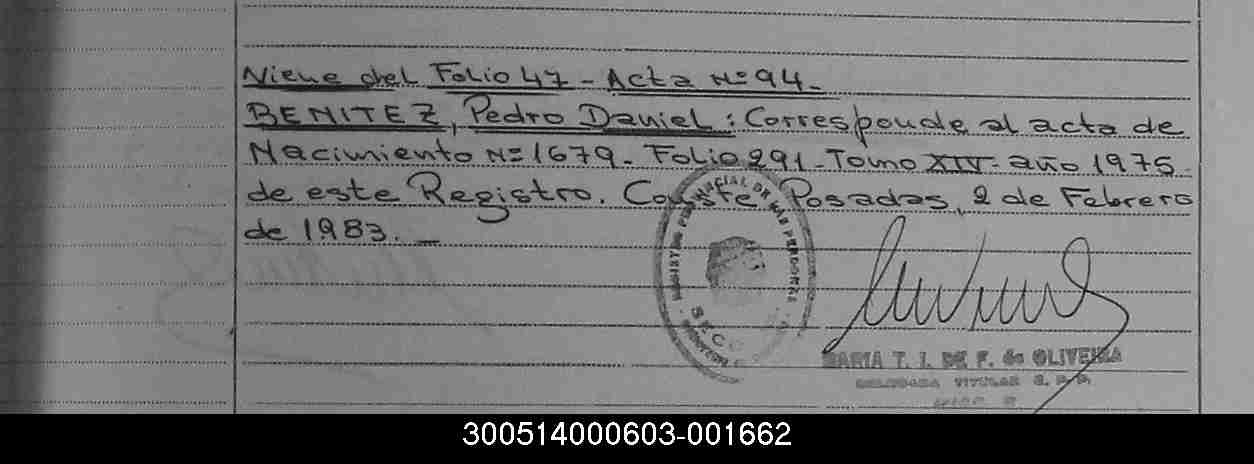 Viene del Folio 47 - Acta Nº 94.
BENITEZ, Pedro Daniel: Corresponde al acta de
Nacimiento Nº 1679. Folio 291. Tomo XIV. año 1975.
de este Registro. Conste. Posadas, 2 de Febrero
de 1983. _
REGISTRO PROVINCIAL DE LAS PERSONAS
SECC
MARIA T. I. DE F. de OLIVEIRA
DELEGADA TITULAR R. P. P.
300514000603-001662